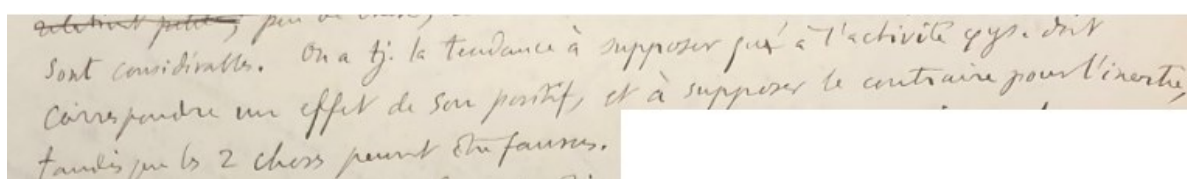 relativt petits, peu de
sont considérables. On a tj. la tendance à supposer qu'à l'activité φys. doit
correspondre un effet de son positif, et à supposer le contraire pour l'inertie,
tandis que les 2 choses peuvent être fausses.